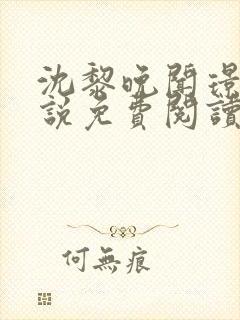 沈黎晚聞璟
說免費閱讀
何無痕